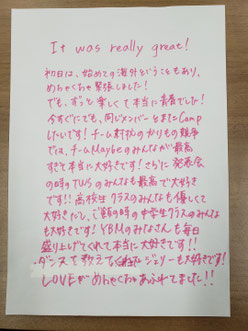 It was really great!
初日は、始めての海外ということもあり、
めちゃくちゃ緊張しました!
でも、ずっと楽しくて本当に青春でした!
今すぐにでも、同じメンバーとまたCamp
したいです!チーム対抗のかりもの競争
では、チームMaybeのみんなが最高
すぎて本当に大好きです!さらに発表会
の時のTUSのみんなも最高で大好き
です!!高校生クラスのみんなも優しくて
大好きだし、ご飯の時の中学生クラスのみんな
も大好きです!YBMのみなさんも毎日
盛り上げてくれて本当に大好きです!!
ダンスを教えてくれたジェリーも大好きです!
LOVEがめんちゃくちゃあふれてました!!